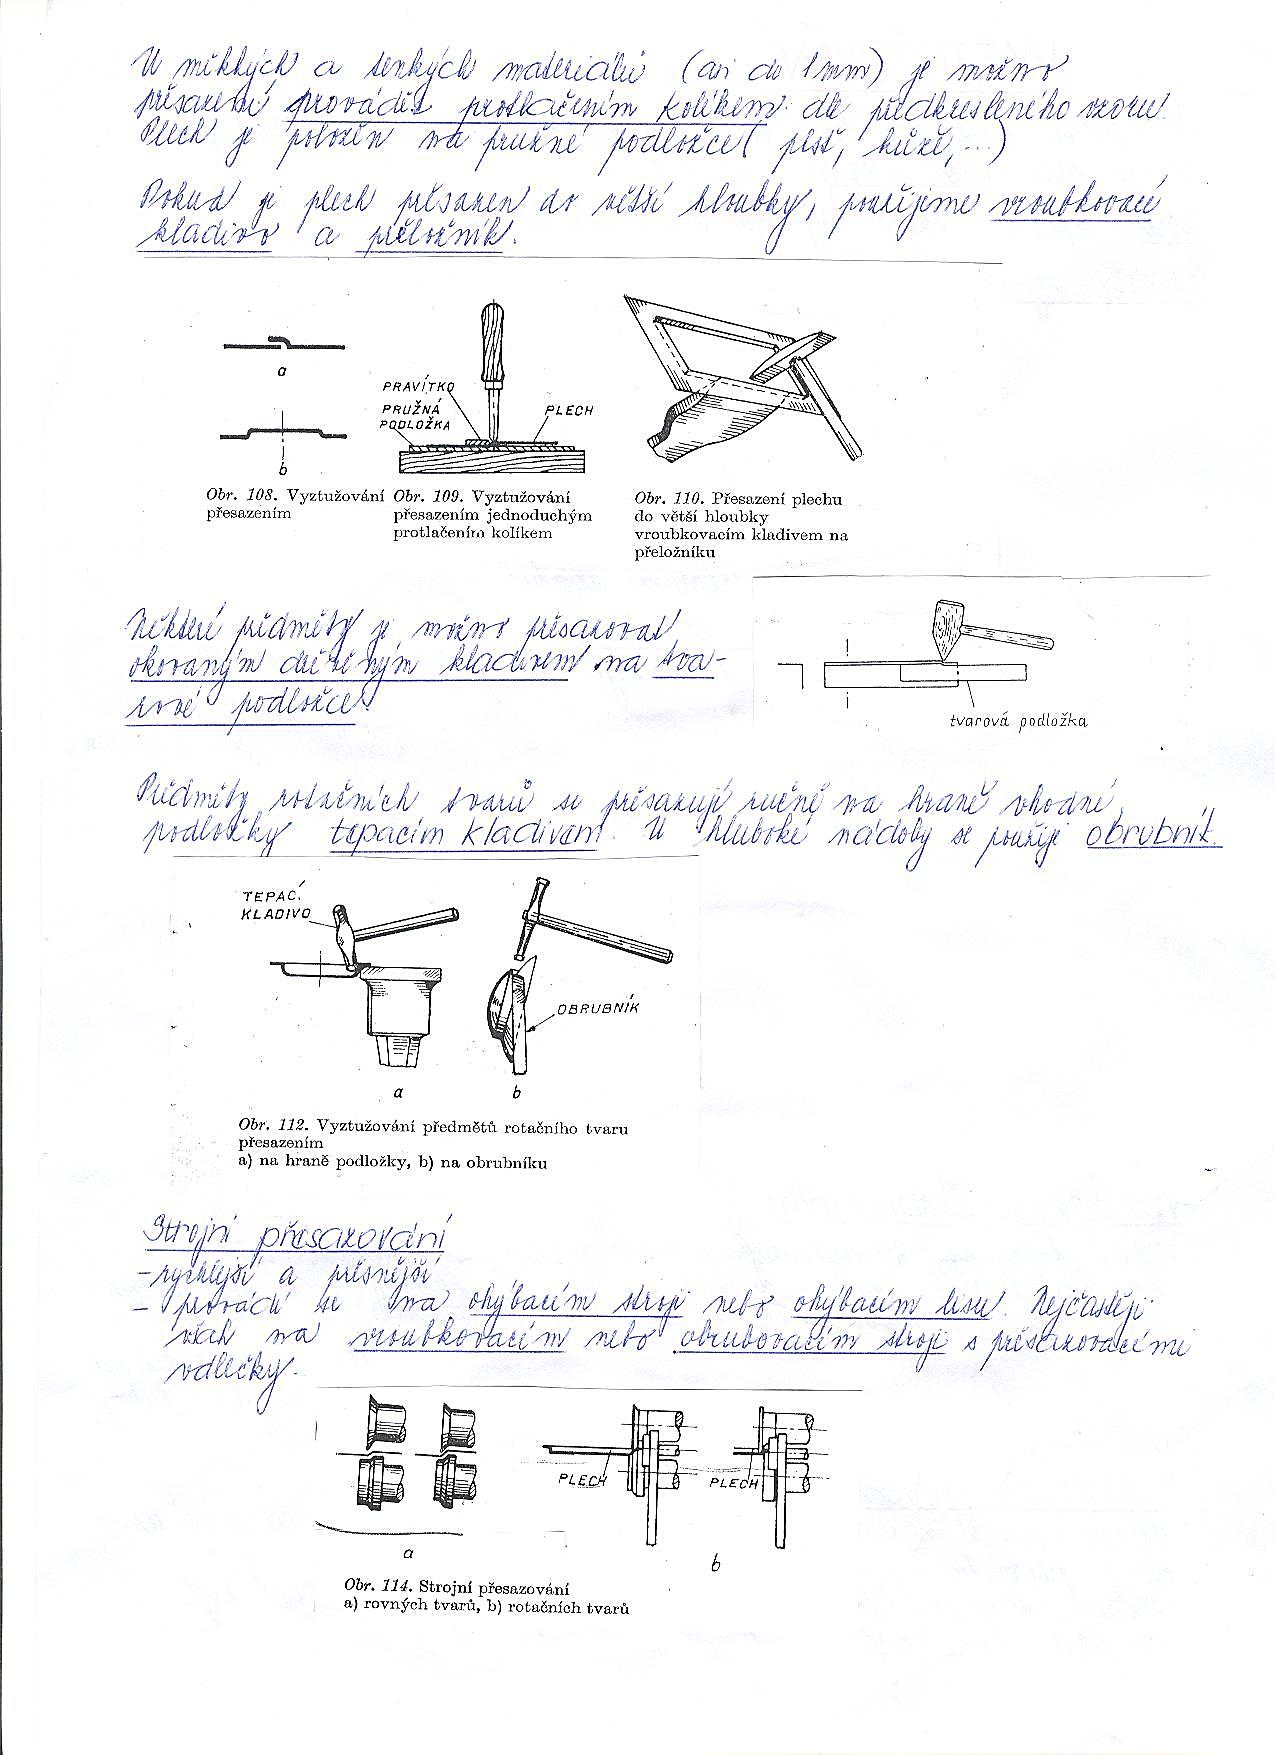 U měkkých a tenkých materiálů (asi do 1mm) je možno
přesazení provádět protlačením kolíkem dle předkresleného vzoru.
Plech je položen na pružné podložce (plst, kůže, ...)
Pokud je plech přesazen do větší hloubky, použijeme vroubkovací
kladivo a přeložník.
a
b
PRAVÍTKO
PRUŽNÁ
PODLOŽKA
PLECH
Obr. 108. Vyztužování
přesazením
Obr. 109. Vyztužování
přesazením jednoduchým
protlačením kolíkem
Obr. 110. Přesazení plechu
do větší hloubky
vroubkovacím kladivem na
přeložníku
Některé předměty je možno přesazovat
okovaným dřevěným kladivem na tva-
rové podložce.
tvarová podložka
Předměty rotačních tvarů se přesazují ručně na hraně vhodné
podložky tepacím kladivem. U hluboké nádoby se použije obrubník.
TEPACÍ
KLADIVO
OBRUBNÍK
a
b
Obr. 112. Vyztužování předmětů rotačního tvaru
přesazením
a) na hraně podložky, b) na obrubníku
Strojní přesazování
- rychlejší a přesnější
- provádí se na ohýbacím stroji nebo ohýbacím lisu. Nejčastěji
však na vroubkovacím nebo obrubovacím stroji s přesazovacími
válečky.
PLECH
PLECH
a
b
Obr. 114. Strojní přesazování
a) rovných tvarů, b) rotačních tvarů